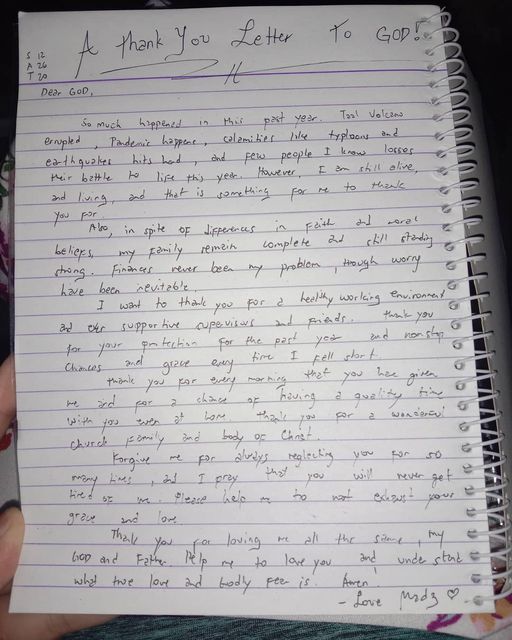 A Thank You Letter To GOD!
S 12
A 26
T 20
Dear GOD,
So much happened in this past year. Taal Volcano
erupted, Pandemic happens, calamities like typhoons and
earthquakes hits hard, and few people I know losses
their battle to life this year. However, I am still alive,
and living, and that is something for me to thank
you for.
Also, in spite of differences in Faith and moral
beliefs, my family remain complete and still standing
strong. Finances never been my problem, though worry
have been inevitable.
I want to thank you for a healthy working environment
and ever supportive supervisors and friends. Thank you
for your protection for the past year and nonstop
chances and grace every time I fell short.
Thank you for every morning that you have given
me and for a chance of having a quality time
with you even at home. Thank you for a wonderful
church family and body of Christ.
Forgive me for always neglecting you for so
many times, and I pray that you will never get
tired of me. Please help me to not exhaust your
grace and love.
Thank you for loving me all the same, my
GOD and Father. Help me to love you and understand
what true love and Godly fear is. Amen!
- Love Madz ♡